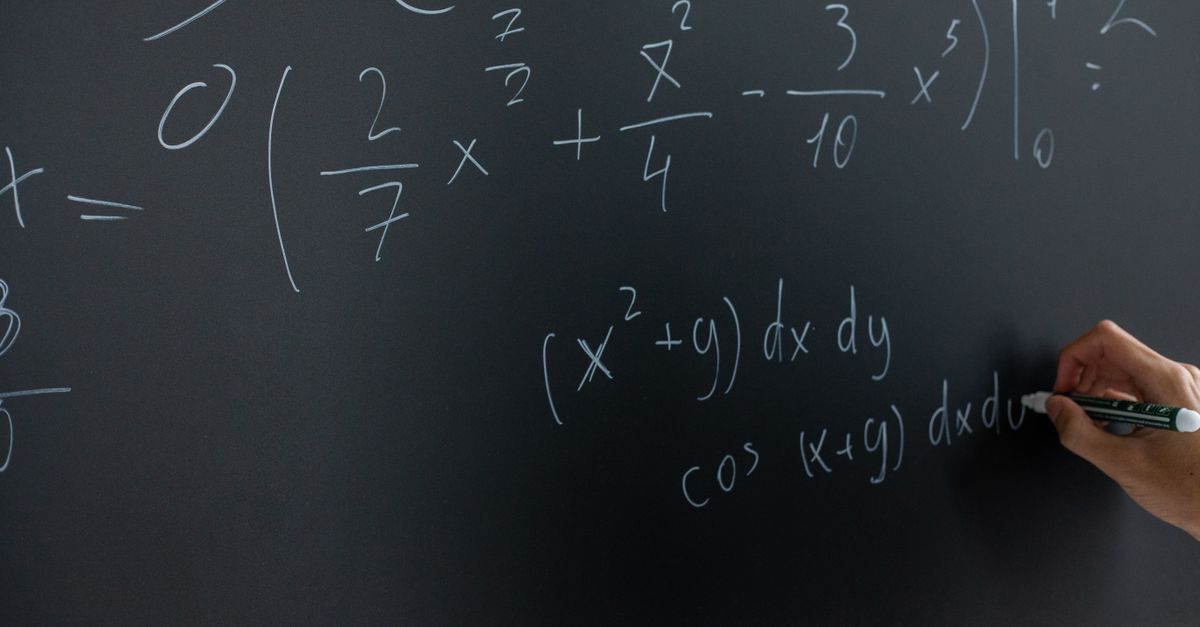 x = 0 ( 2/7 x^7/2 + x^2/4 - 3/10 x^5 ) |_0
(x^2+y) dx dy
cos (x+y) dx d